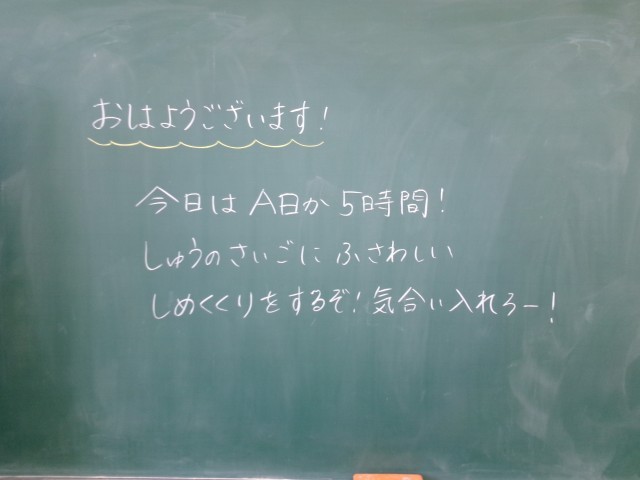 おはようございます!
今日は A日か 5時間!
しゅうのさいごに ふさわしい
しめくくりをするぞ! 気合い入れろー!